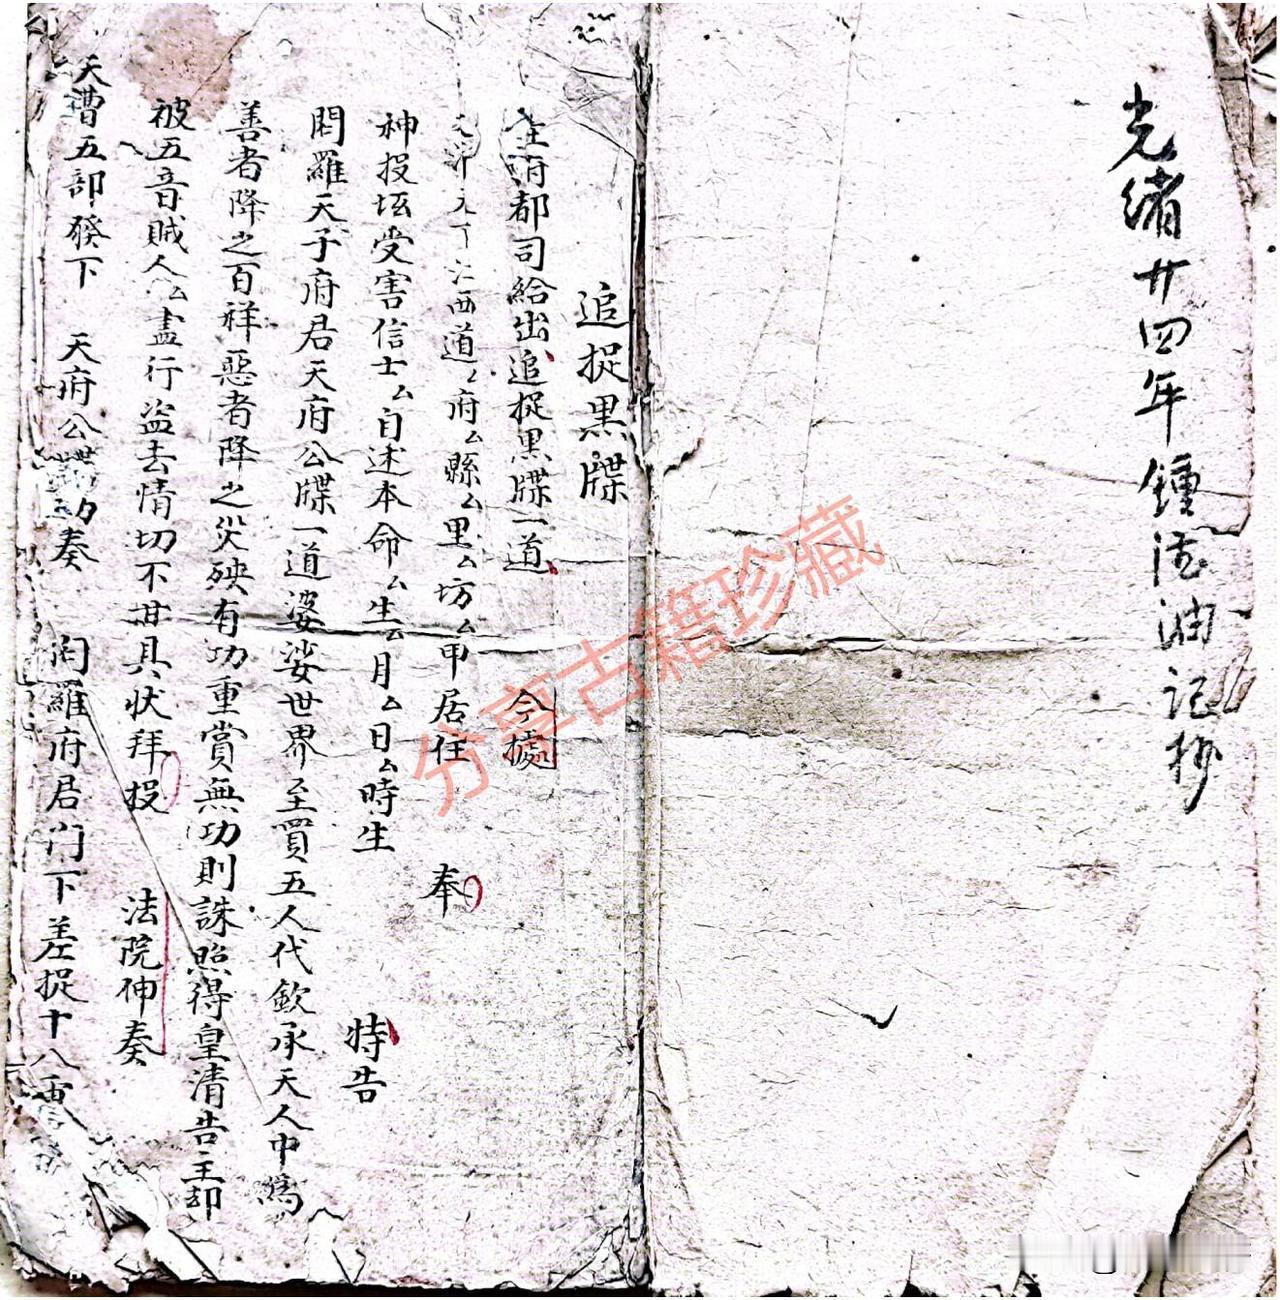 光緒廿四年鍾法油記抄
追捉黑牒
府都司給出追捉黑牒一道 今據
西道府厶縣厶里厶坊厶甲居住 奉
神投坛受害信士厶自述本命厶生厶月厶日厶時生 特告
閗羅天子府君天府公牒一道婆娑世界至買五人代欽承天人中為
善者降之百祥惡者降之災殃有功重賞無功則誅照得皇清告主却
被五音賊人厶盡行盜去情切不甘具状拜投 法院伸奏
天曹五部發下 天府公牒 奏 羅府君门下差捉十八
分享古籍珍藏